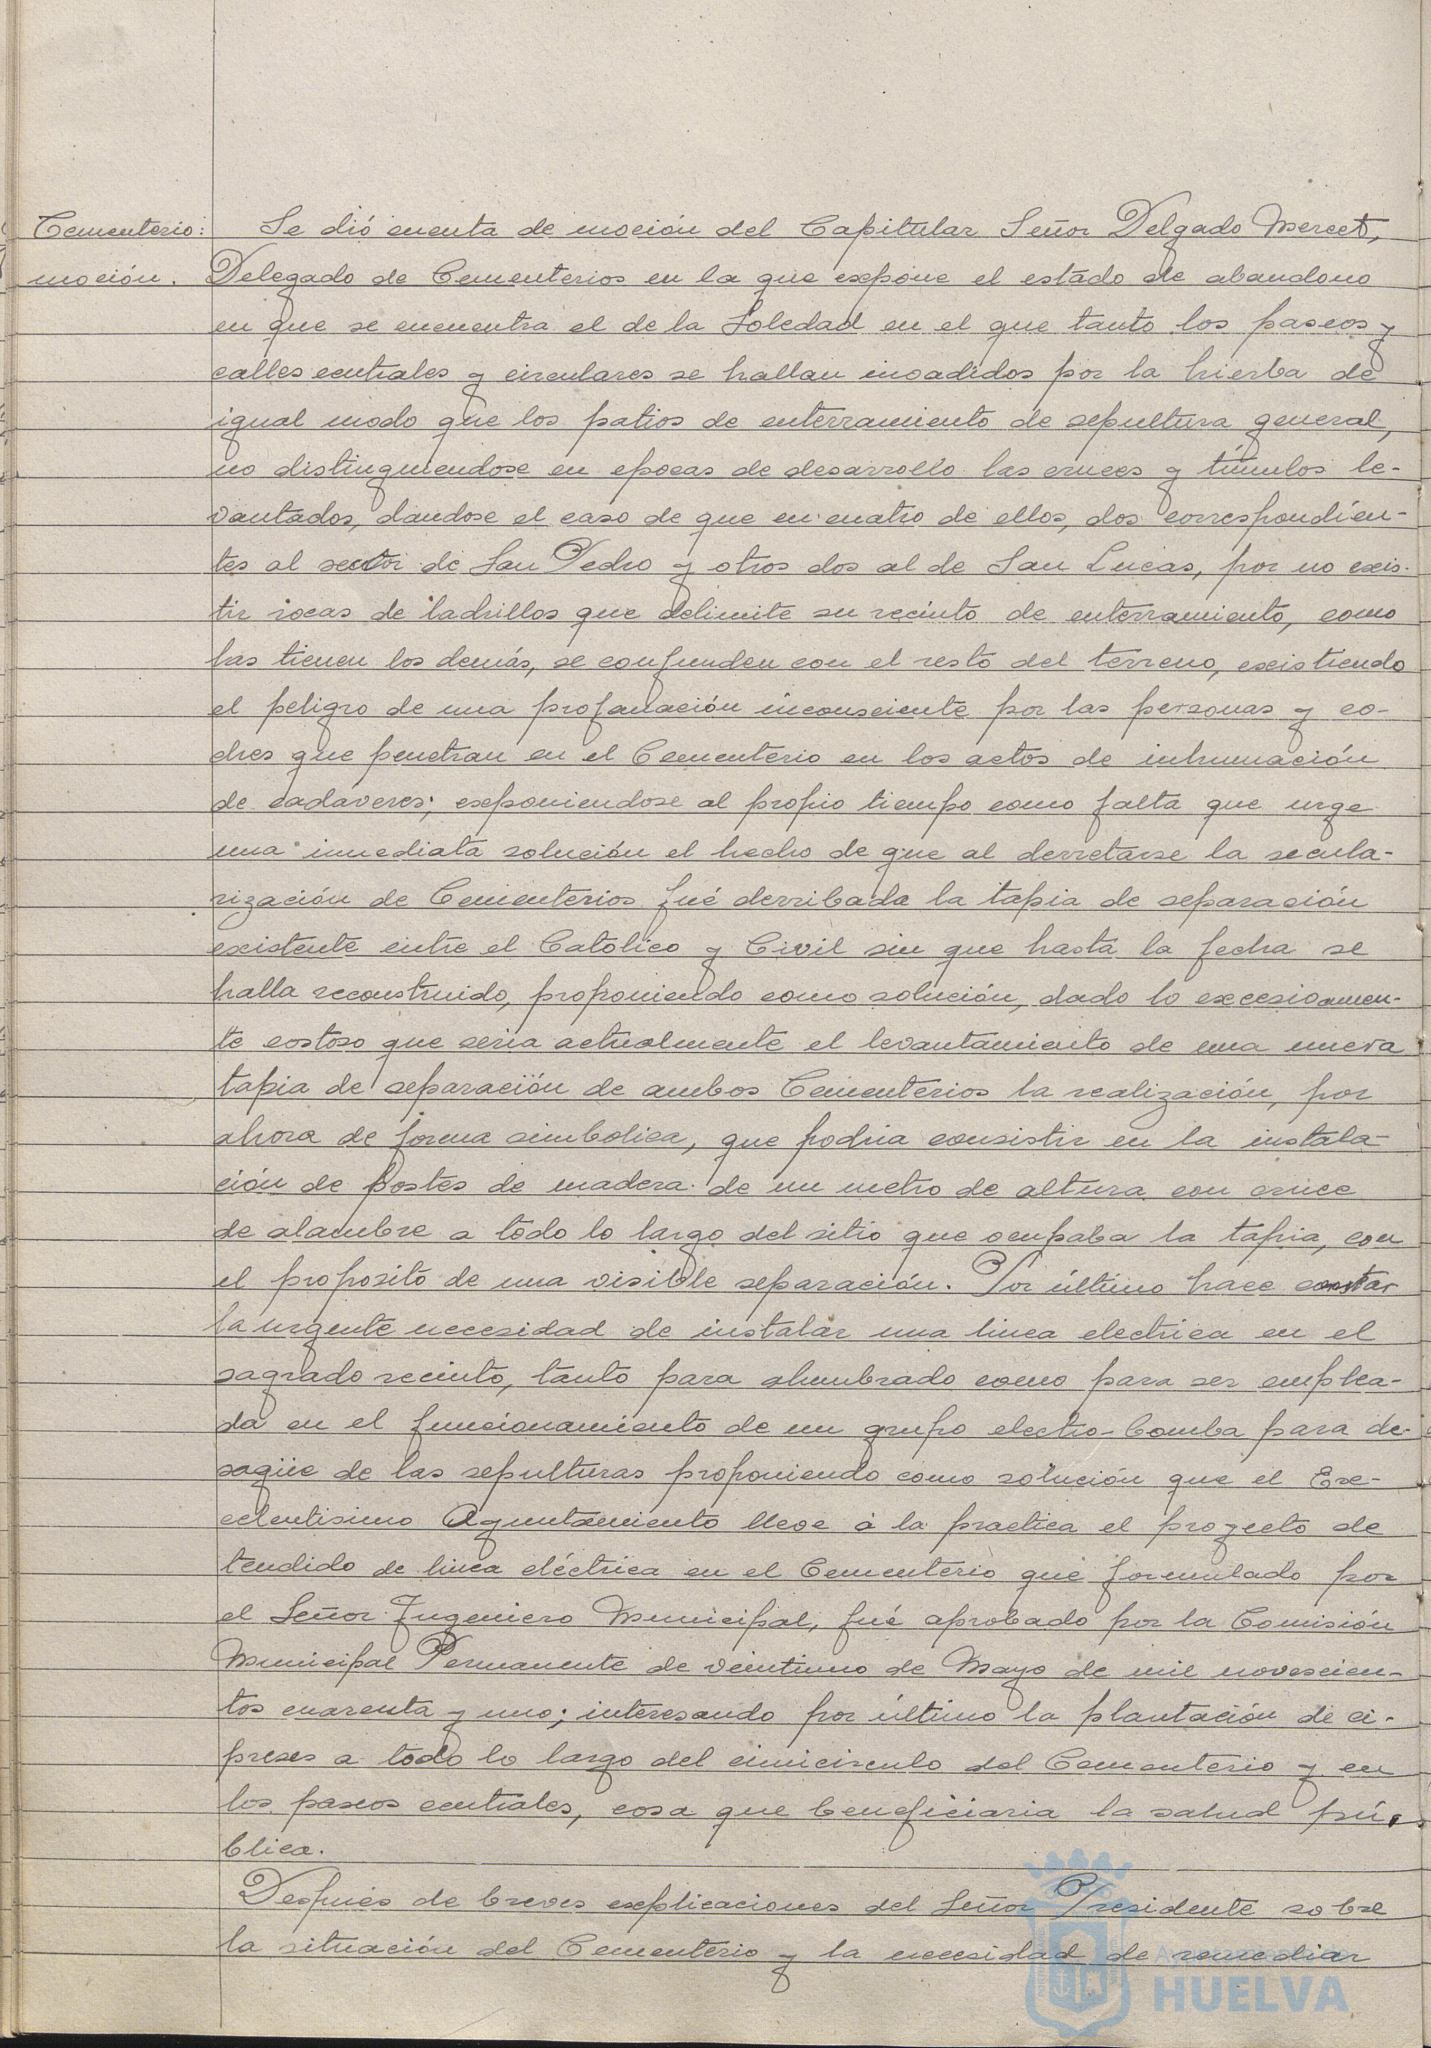 Cementerio:
moción.
Se dió cuenta de moción del Capitular Señor Delgado Mercet,
Delegado de Cementerios en la que expone el estado de abandono
en que se encuentra el de la Soledad en el que tanto los paseos y
calles centrales y circulares se hallan invadidos por la hierba de
igual modo que los patios de enterramiento de sepultura general,
no distinguiendose en epocas de desarrollo las cruces y túmulos le-
vantados, dandose el caso de que en cuatro de ellos, dos correspondien-
tes al sector de San Pedro y otros dos al de San Lucas, por no exis-
tir de ladrillos que delimite su recinto de enterramiento, como
las tienen los demás, se confunden con el resto del terreno, existiendo
el peligro de una profanación inconsciente por las personas y co-
ches que penetran en el Cementerio en los actos de inhumación
de cadaveres; exponiendose al propio tiempo como falta que urge
una inmediata solución el hecho de que al decretarse la secula-
rización de Cementerios fué derribada la tapia de separación
existente entre el Catolico y Civil sin que hasta la fecha se
halla reconstruido, proponiendo como solución, dado lo excesivamen-
te costoso que seria actualmente el levantamiento de una nueva
tapia de separación de ambos Cementerios la realización, por
ahora de forma simbolica, que podria consistir en la instala-
ción de postes de madera de un metro de altura con cruce
de alambre a todo lo largo del sitio que ocupaba la tapia, con
el proposito de una visible separación. Por último hace constar
la urgente necesidad de instalar una linea electrica en el
sagrado recinto, tanto para alumbrado como para ser emplea-
da en el funcionamiento de un grupo electro-bomba para de-
sagüe de las sepulturas proponiendo como solución que el Exc-
celentisimo Ayuntamiento lleve á la practica el proyecto de
tendido de linea eléctrica en el Cementerio que formulado por
el Señor Ingeniero Municipal, fué aprobado por la Comisión
Municipal Permanente de veintiuno de Mayo de mil novecien-
tos cuarenta y uno; interesando por último la plantación de ci-
preses a todo lo largo del cimicirculo del Cementerio y en
los paseos centrales, cosa que beneficiaria la salud pú-
blica.
Después de breves explicaciones del Señor Presidente sobre
la situación del Cementerio y la necesidad de remediar
Ayuntamiento de
HUELVA